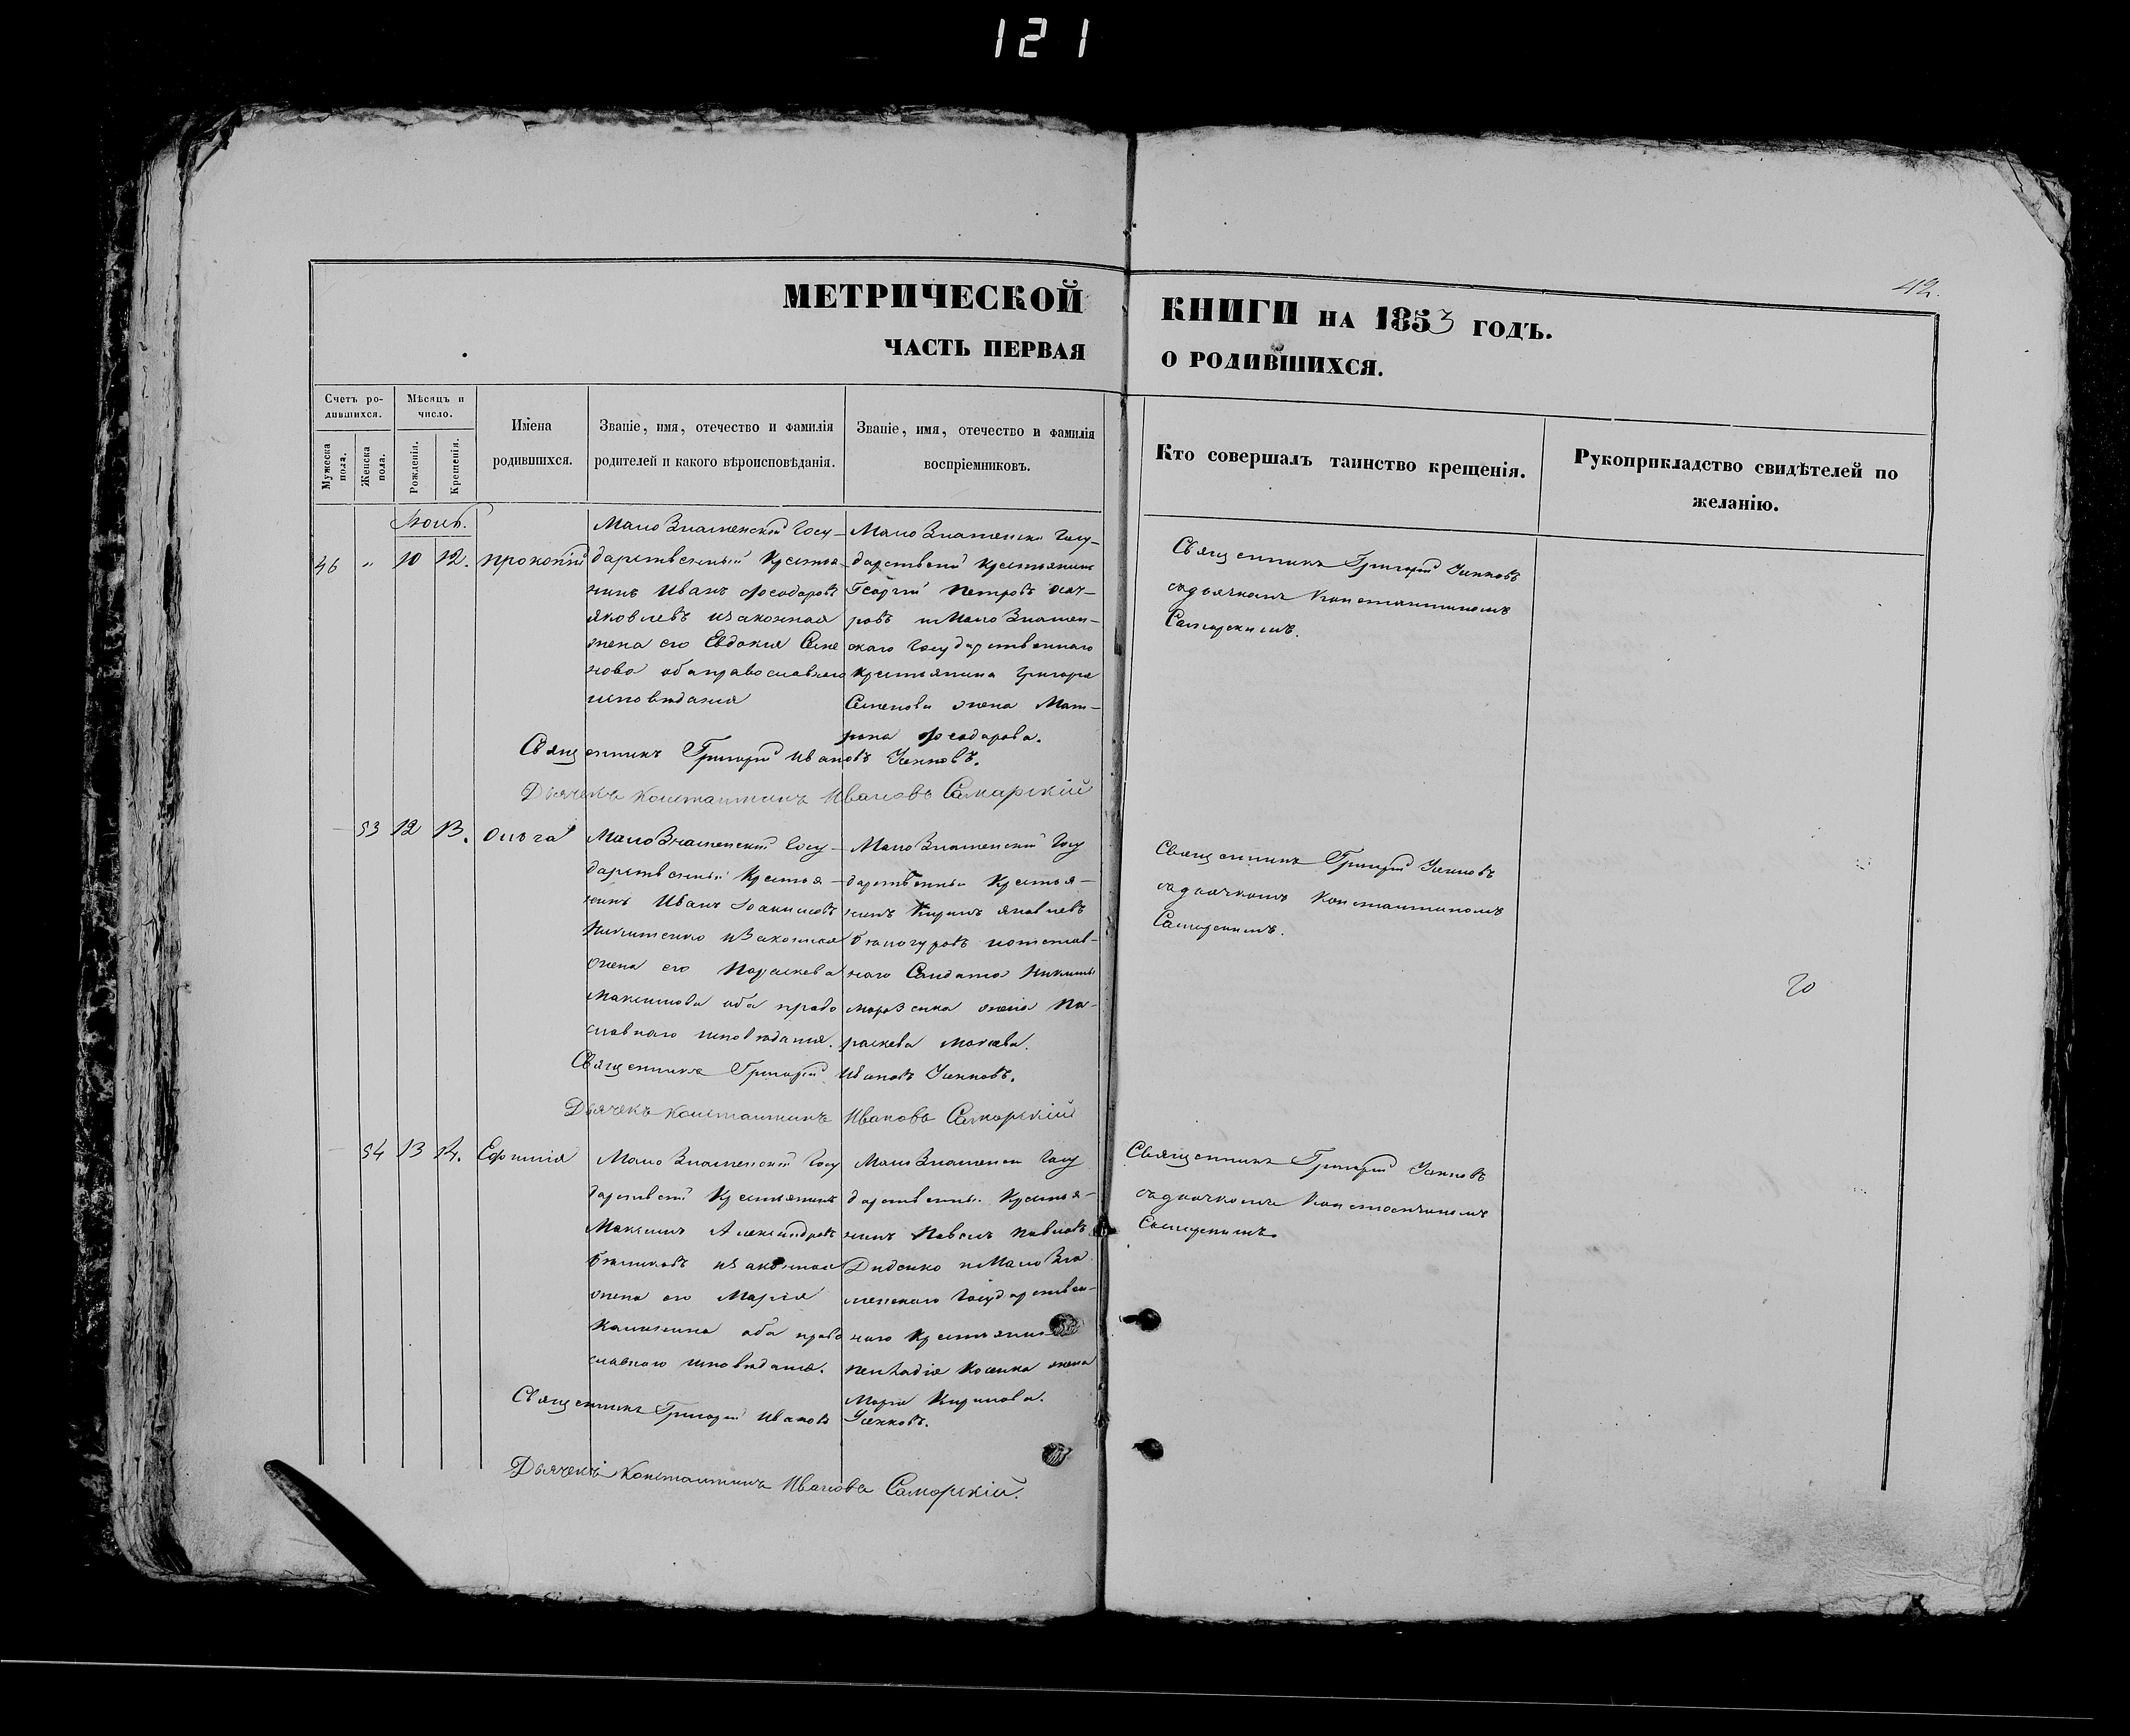 121
42.
МЕТРИЧЕСКОЙ КНИГИ НА 1853 ГОДЪ.
ЧАСТЬ ПЕРВАЯ О РОДИВШИХСЯ.
Счетъ ро-
дившихся.
Мужеска пола.
Женска пола.
Мѣсяцъ и
число.
Рожденія.
Крещенія.
Имена
родившихся.
Званіе, имя, отечество и фамилія
родителей и какого вѣроисповѣданія.
Званіе, имя, отечество и фамилія
воспріемниковъ.
Кто совершалъ таинство крещенія.
Рукоприкладство свидѣтелей по
желанію.
46 " 10 12. Прокопій
Мало Знаменской Госу-
дарственный Крестья-
нинъ Иванъ Феодоровъ
Яковлевъ изаконная
жена его Евдокия Семе
нова оба православнаго
исповѣдания
Мало Знаменски Госу-
дарствений Крестьянинъ
Георгій Петровъ
ровъ и Мало Знамен-
скаго Государственнаго
Крестьянина Григория
Семенова жена Мат-
рона Феодорова.
Священникъ Григорій
содьячкомъ Константиномъ
Самарскимъ.
Священникъ Григорій Ивановъ
Дьячекъ Константинъ Ивановъ Самарскій
53 12 13. Ольга
Мало Знаменский Госу-
дарственный Крестья-
нинъ Иванъ
Никитенко изаконная
жена его Параскева
Максимова оба право
славнаго исповѣдания.
Мало Знаменский Госу
дарственный Крестья-
нинъ Кирилъ Яковлевъ
иотстав-
наго Солдата Никиты
Морозенка жена Па-
раскева
Священникъ Григорій
содьячкомъ Константиномъ
Самарскимъ.
Священникъ Григорій Ивановъ
Дьячекъ Константинъ Ивановъ Самарскій
54 13 14. Ефимія
Мало Знаменский Госу
дарствений Крестьянинъ
Максимъ Александровъ
изаконная
жена его Марія
оба право
славнаго исповѣдания.
Мало Знаменски Госу
дарственный Крестья-
нинъ Павелъ Павловъ
Диденко и Мало Зна
менскаго Государствен-
наго Крестьянина
Косенка жена
Марія Кирилова.
Священникъ Григорій
содьячкомъ Константиномъ
Самарскимъ.
Священникъ Григорій Ивановъ
Дьячекъ Константинъ Ивановъ Самарскій.